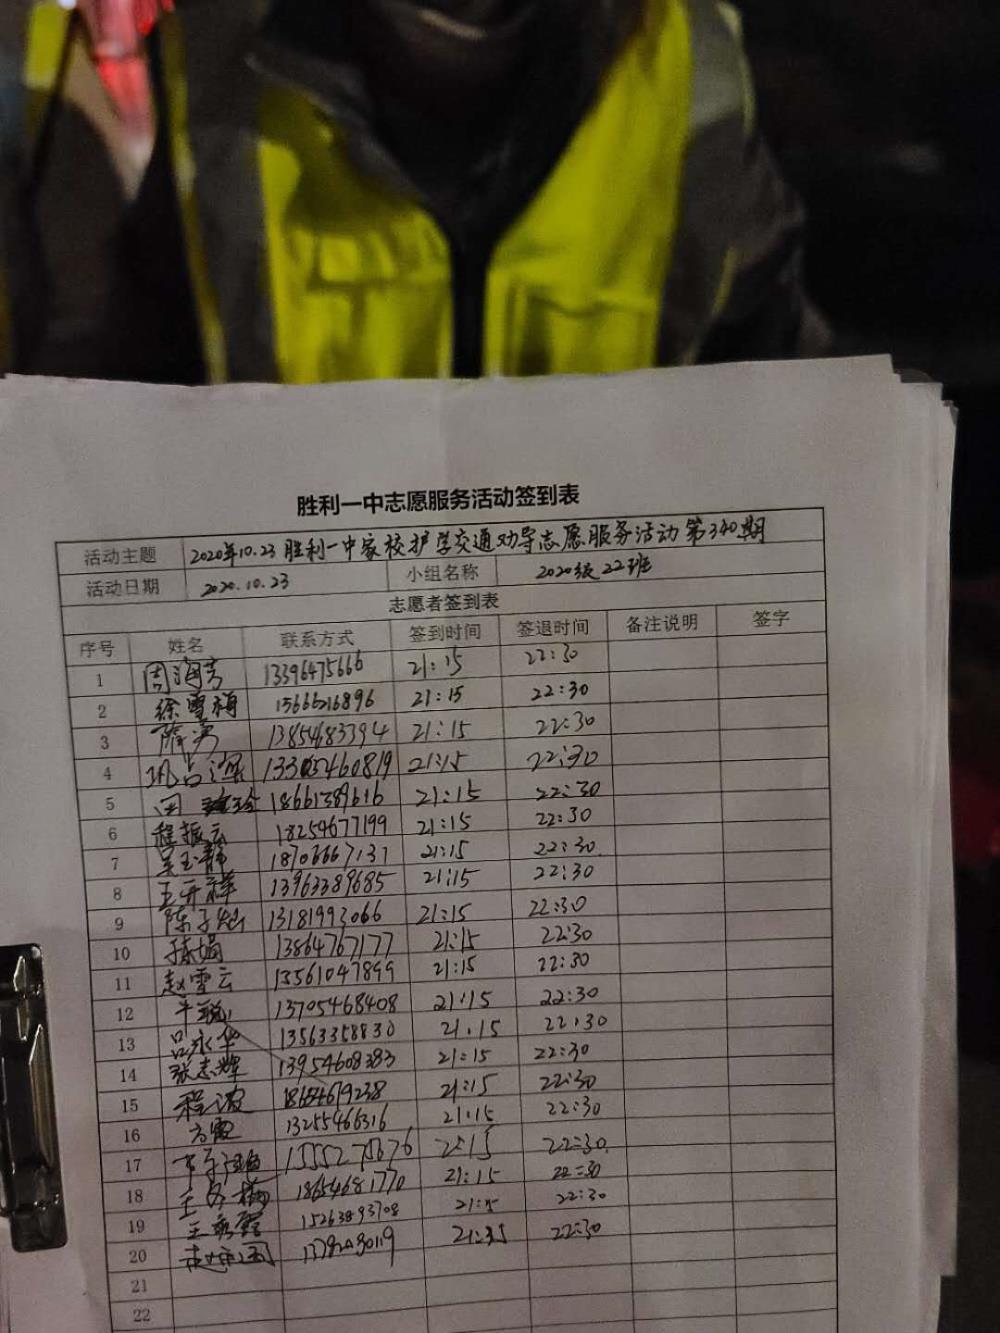 胜利一中志愿服务活动签到表
活动主题 2020年10.23胜利一中家校护学交通劝导志愿服务活动第340期
活动日期 2020.10.23 小组名称 2020级22班
志愿者签到表
序号 姓名 联系方式 签到时间 签退时间 备注说明 签字
1 周海芳 13396475666 21:15 22:30
2 徐雪梅 15666216896 21:15 22:30
3 薛勇 13854683394 21:15 22:30
4 21:15 22:30
5 18661389616 21:15 22:30
6 程振云 18254677199 21:15 22:30
7 吴玉静 18706667137 21:15 22:30
8 王开祥 13963389685 21:15 22:30
9 陈子灿 13181993066 21:15 22:30
10 孙娟 13864767177 21:15 22:30
11 赵雪云 13561047899 21:15 22:30
12 13705468408 21:15 22:30
13 吕永华 13563358830 21:15 22:30
14 张志辉 13954608383 21:15 22:30
15 程波 18654619238 21:15 22:30
16 方霞 13255466316 21:15 22:30
17 22:30
18 18654681770 21:15 22:30
19 15263893708 22:30
20 22:30
21
22